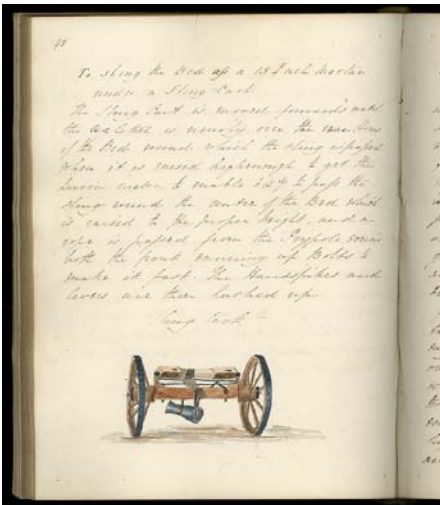 To sling the Bed of a 13 Inch Mortar
under a Sling Cart.
The Sling Cart is moved forwards until
the axletree is nearly over the rear
of the Bed round which the sling is passed
When it is raised high enough to get the
to enable to pass the
sling round the center of the Bed which
is raised to the proper height, and a
rope is passed from the round
both the front running up Bolts to
make it fast. The Handspikes and
levers are then lashed up.
Sling Cart